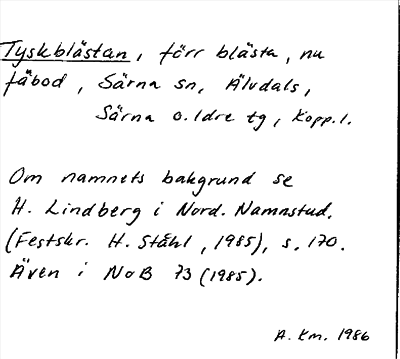 Tyskblästan, förr blästa, nu
fäbod, Särna sn, Älvdals,
Särna o. Idre tg, Kopp. l.
Om namnets bakgrund se
H. Lindberg i Nord. Namnstud.
(Festskr. H. Ståhl, 1985), s. 170.
Även i NoB 73 (1985).
A. Km. 1986